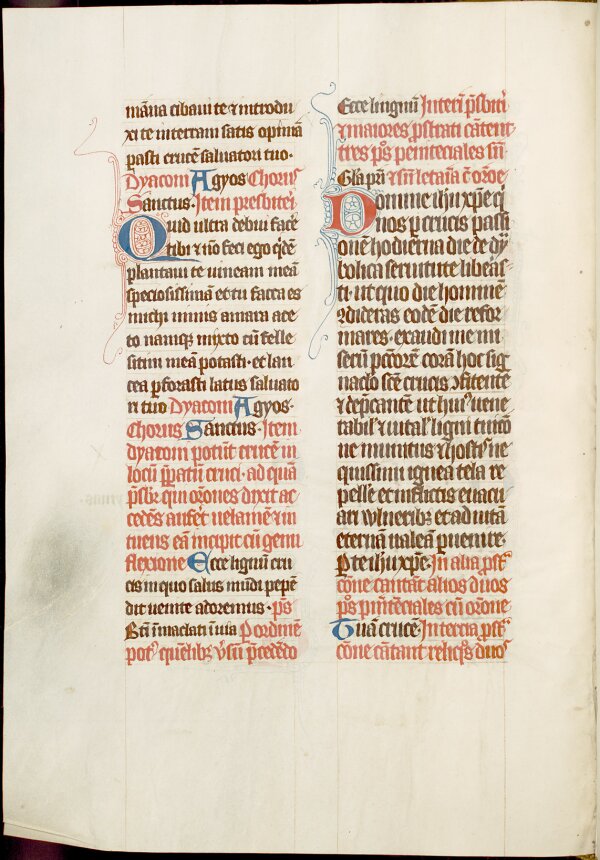 māna cibaui te ⁊ introdu
xi te in terram satis optimā
pasti crucē saluatori tuo·
Dyaconi Agyos Chorus
Sanctus· Item presbiteri
Quid ultra debui facē
tibi ⁊ nō feci ego q̄dē
plantaui te uineam meā
speciosissimā et tu facta es
michi nimis amara ace
to namq̢ mixto cū felle
sitim meā potasti· et lan
cea p̱forasti latus saluato
ri tuo Dyaconi Agyos·
Chorus Sanctus· Item
dyaconi potūt crucē in
locū p̄patū cruci· ad quā
p̄sbr qui or̄ones dixit ac
cedēs aufert uelamē ⁊ in
tuens eā incipit cū genu
flexione Ecce lignū cru
cis in quo salus mūdi pepē
dit uenite adoremus· p̄s
Bt̄i īmaclati ī uia P ordinē
pot̉ quēlibꝫ v̄sū p̄cedēdo
Ecce lingnū Interī p̄sbiti
⁊ maiores p̱strati cātent
tres p̄s penitēciales sn̄
Gl̄a pr̄i ⁊ sn̄ letaīa c̄ or̄oē
Domine ih̄u xp̄e q̄
nos p̱ crucis passi
onē hodierna die de dy
bolica seruitute libeas
ti· ut quo die hominē
ꝯdideras eodē die refor
mares· exaudi me mi
serū pc̄c̄orē corā hoc sig
naclo sc̄ē crucis ꝯfitentē
⁊ dep̄cantē ut hui᷒ uene
rabil̉ ⁊ uital̉ ligni tuicō
ne munitus ⁊ hostis ne
quissimi ignea tela re
pellē et inflictis euacu
ari wlneribꝫ et ad uitā
eternā ualeā puenire·
P te ih̄u xp̄e· In alia p̱st᷒
cōne cantāt alios duos
p̄s pn̄itēciales cū or̄one
Tuā crucē· In tercia p̱st᷒
cōne cātant reliq̄s duo᷒